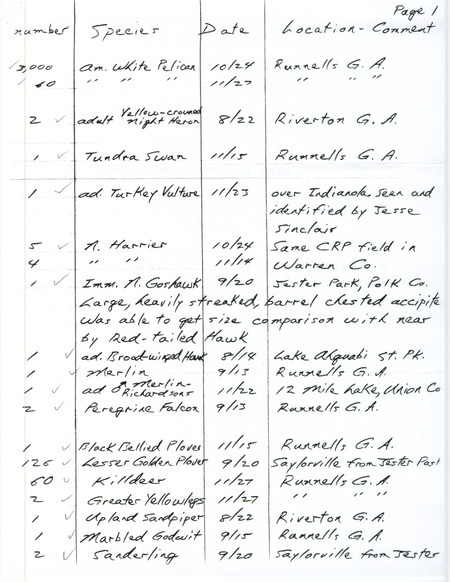 Page 1
number Species Date Location - Comment
3,000 am. White Pelican 10/24 Runnells G. A.
60 " " " 11/27 " " "
2 ✓ adult Yellow-crowned night Heron 8/22 Riverton G. A.
1 ✓ Tundra Swan 11/15 Runnells G. A.
1 ✓ ad. Turkey Vulture 11/23 over Indianola seen and
identified by Jesse
Sinclair
5 ✓ N. Harrier 10/24 Same CRP field in
4 " " 11/14 Warren Co.
1 ✓ Imm. N. Goshawk 9/20 Jester Park, Polk Co.
Large, heavily streaked, barrel chested accipite
was able to get size comparison with near
by Red-tailed Hawk
1 ✓ ad. Broad-winged Hawk 8/14 Lake Ahquabi St. Pk.
1 ✓ Merlin 9/13 Runnells G. A.
1 ✓ ad ♂ Merlin- Richardsons 11/22 12 Mile Lake, Union Co
2 ✓ Peregrine Falcon 9/13 Runnells G. A.
1 ✓ Black Bellied Plover 11/15 Runnells G. A.
126 ✓ Lesser Golden Plover 9/20 Saylorville from Jester Park
60 ✓ Killdeer 11/27 Runnells G. A.
2 ✓ Greater Yellowlegs 11/27 " " "
1 ✓ Upland Sandpiper 8/22 Riverton G. A.
1 ✓ Marbled Godwit 9/15 Runnells G. A.
2 ✓ Sanderling 9/20 Saylorville from Jester